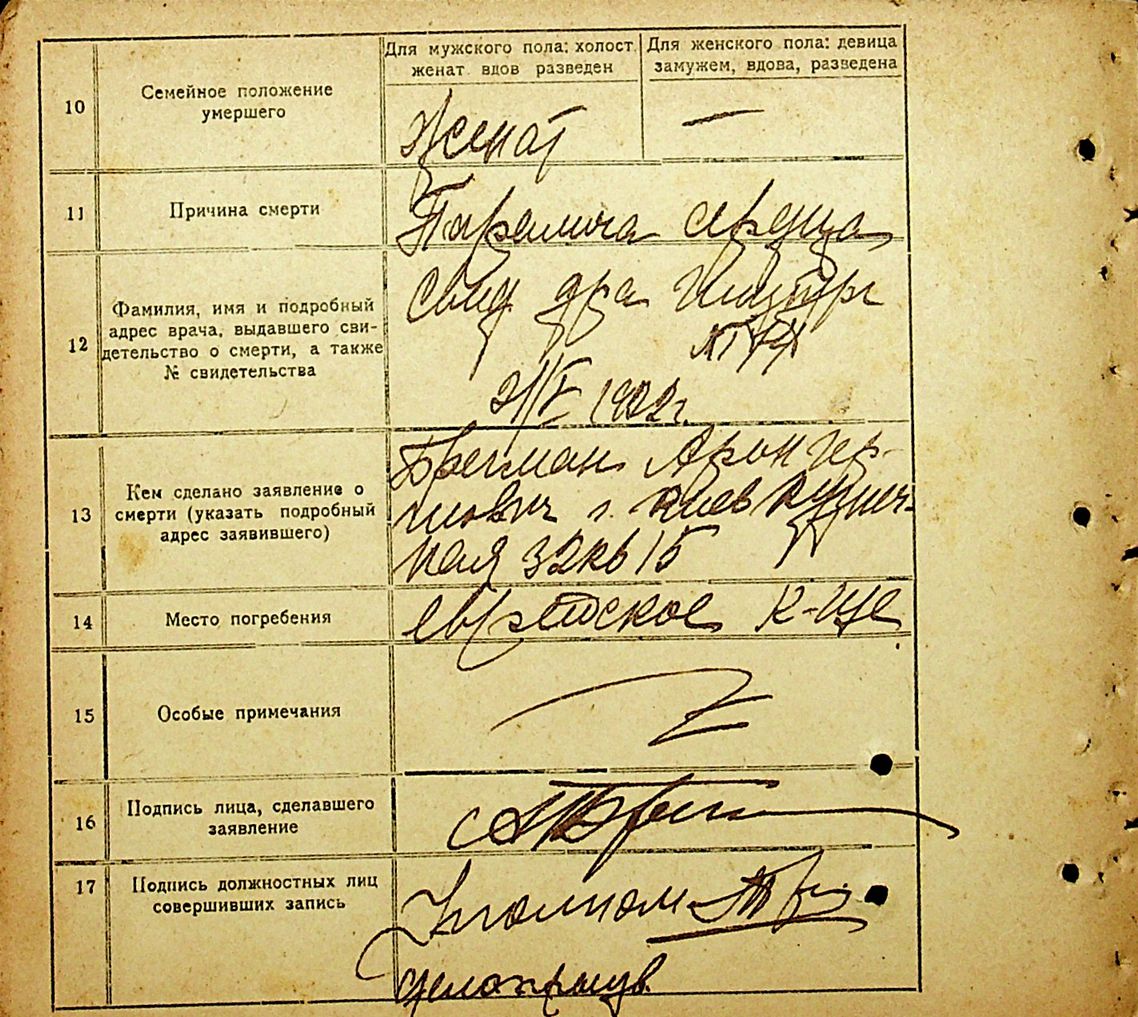 Для мужского пола: холост.
женат вдов разведен
Для женского пола: девица
замужем, вдова, разведена
10
Семейное положение
умершего
Женат
—
11
Причина смерти
Паралича сердца
12
Фамилия, имя и подробный
адрес врача, выдавшего сви-
детельство о смерти, а также
№ свидетельства
дра
1922г.
13
Кем сделано заявление о
смерти (указать подробный
адрес заявившего)
Брегман Арон Гер-
шович г. Киев Кузнеч-
ная 32 кв 15
14
Место погребения
еврейское К-ще
15
Особые примечания
16
Подпись лица, сделавшего
заявление
17
Подпись должностных лиц
совершивших запись
делопроизв